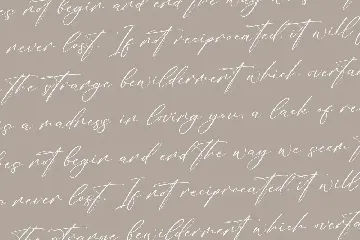 es not begin and end the way we seem
never lost. If not reciprocated, it will
the strange bewilderment which overta
s a madness in loving you, a lack of re
es not begin and end the way we seem t
never lost. If not reciprocated, it will
the strange bewilderment which overta